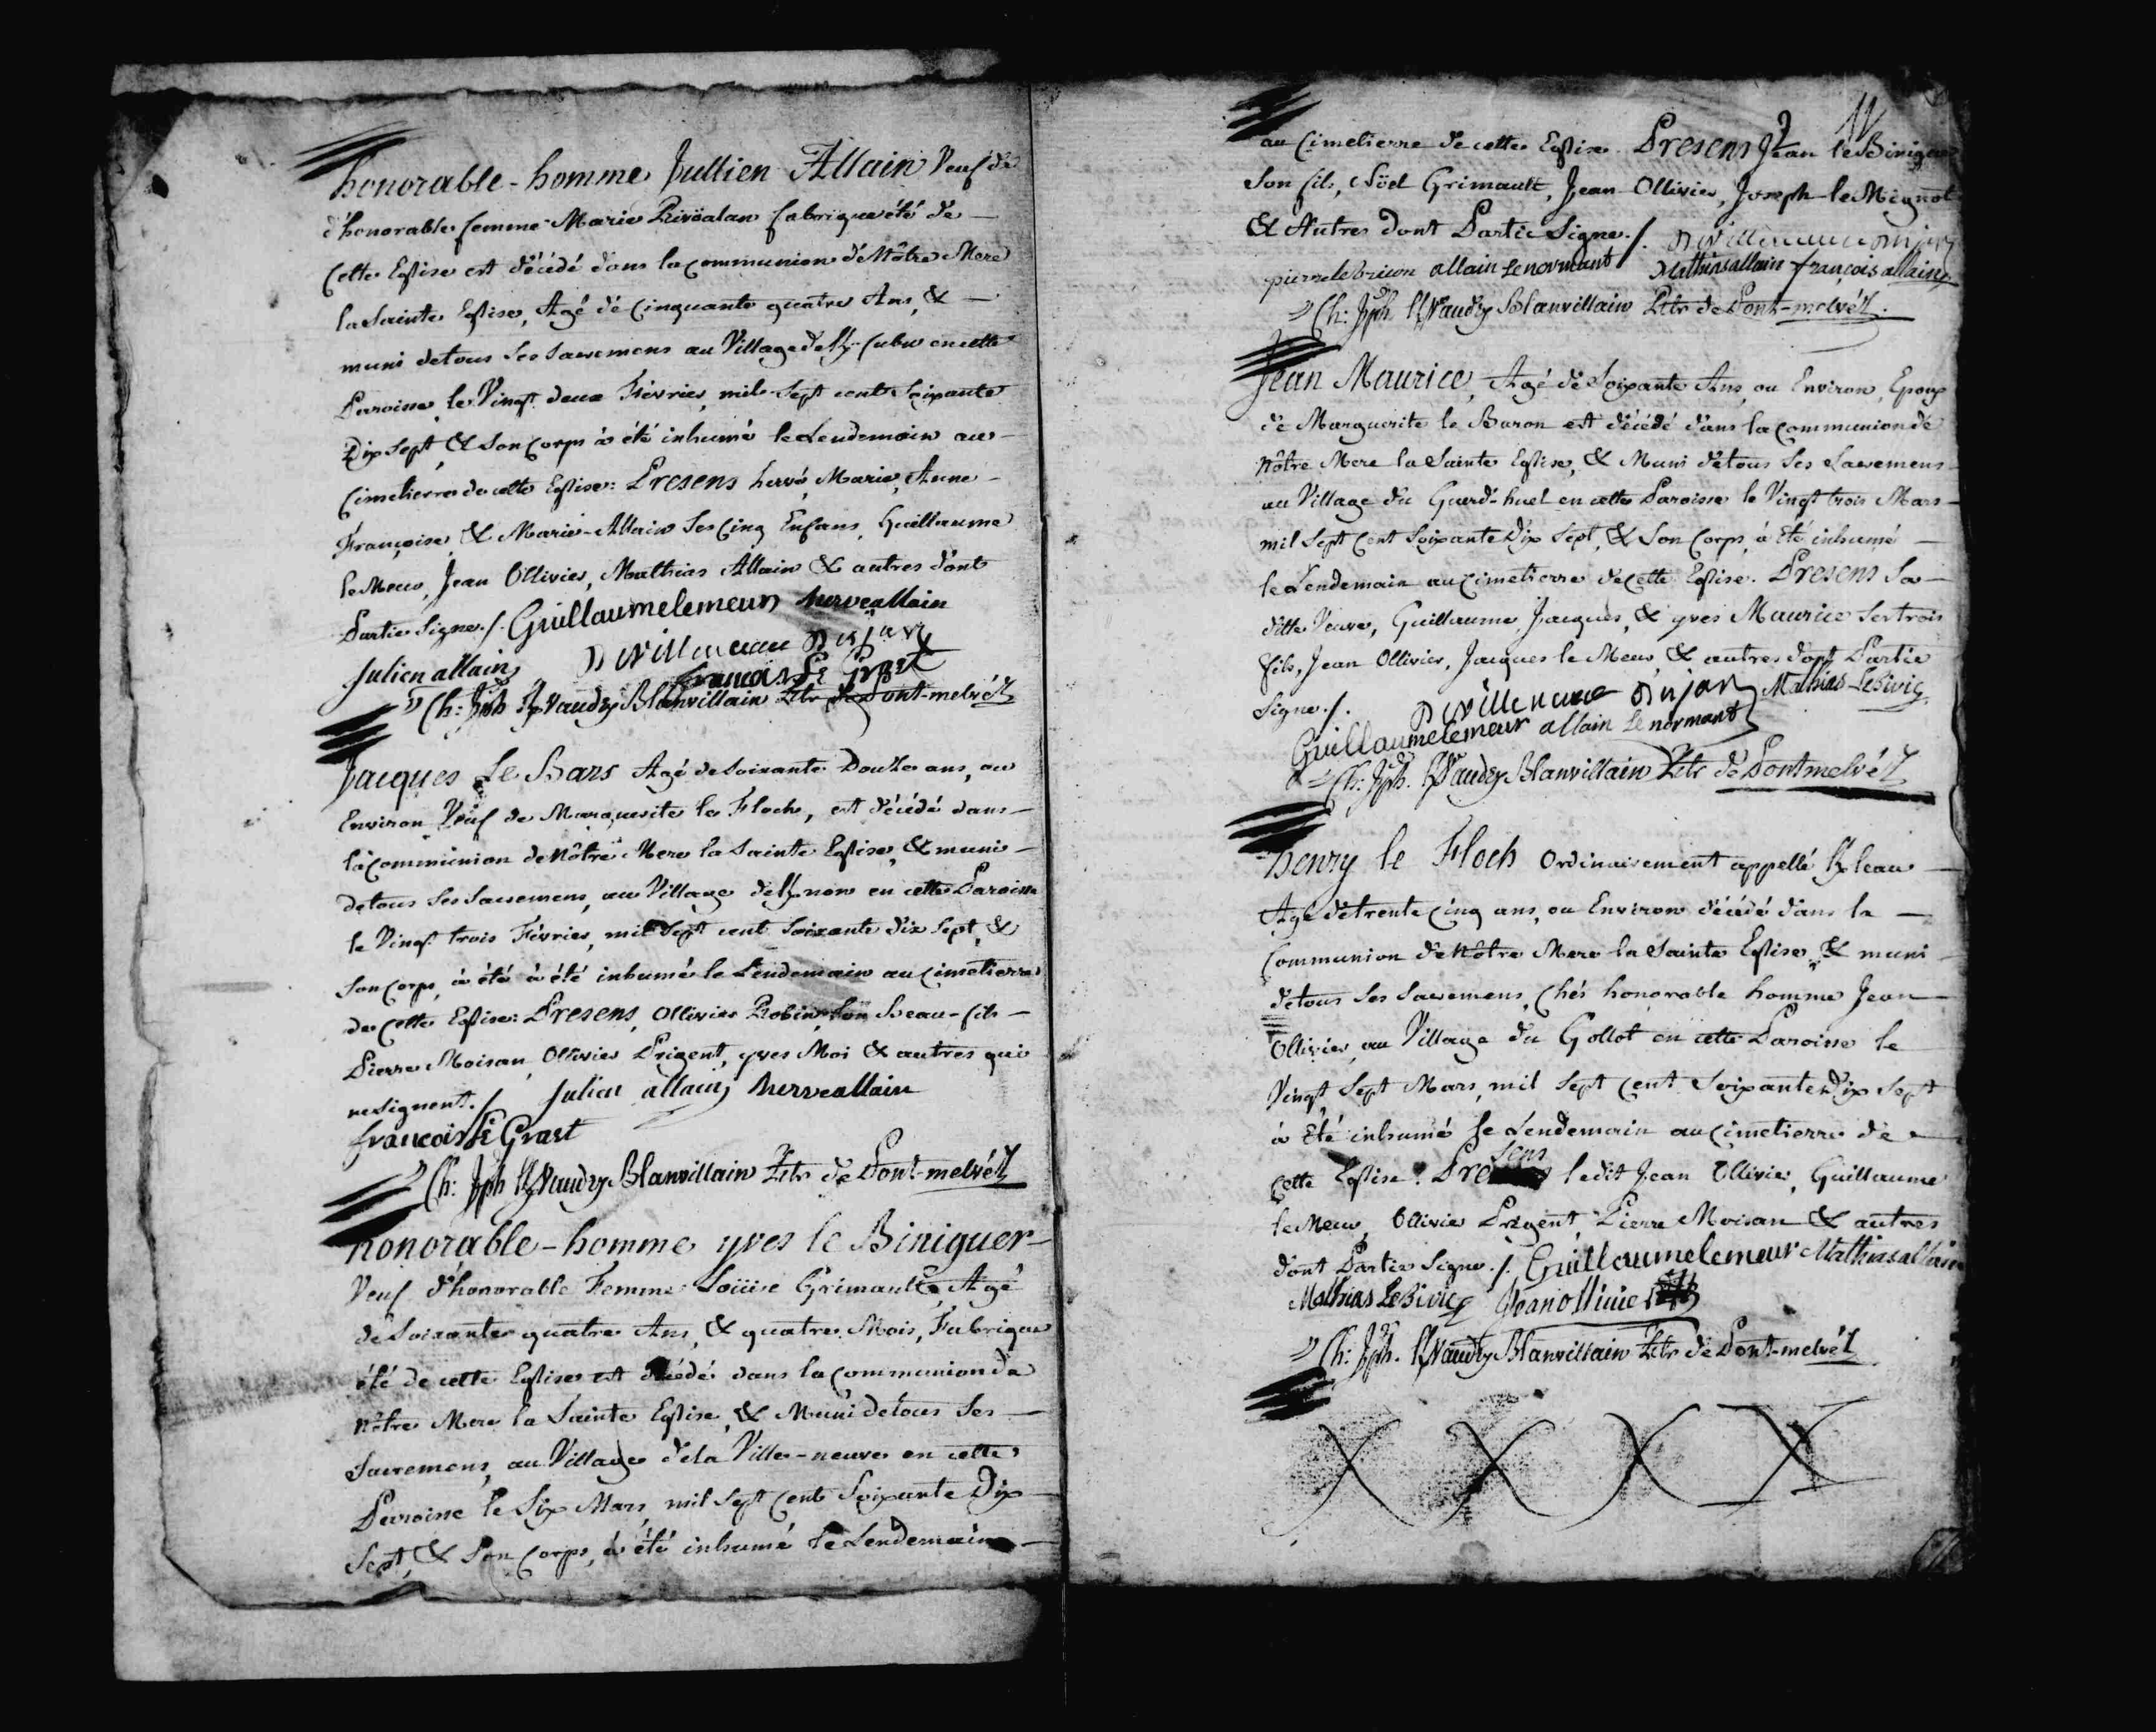 honorable-homme Jullien Allain Veuf de
d'honorable femme Marie Rivöalan fabrique été de
Cette Eglise est décédé dans la communion de Nôtre Mere
la Sainte Eglise, Agé de Cinquante quatre Ans, &
muni de tous ses sacremens au Village de en cette
Paroisse, le Vingt deux Février, mil sept cent soixante
Dix sept, & son corps à été inhumé le Lendemain au
Cimetierre de cette Eglise: Presens hervé, Marie, Anne
Françoise, & Marie-Allain ses cinq Enfans, Guillaume
le Meur, Jean Ollivier, Mathias Allain & autres dont
Partie Signe ./. Guillaume le meur herve allain
Julien allain
françois Le Grast
Ch: Jph Kvaudry Blanvillain Ptre de Pont-melvéz
Jacques Le Bars Agé de soixante Douze ans, ou
Environ, Veuf de Marguerite le Floch, est décédé dans
la communion de Nôtre Mere la Sainte Eglise, & muni
de tous ses sacremens, au Village de en cette Paroisse
le Vingt trois Février, mil sept cent soixante dix sept, &
son corps, à été à été inhumé le Lendemain au cimetierre
de cette Eglise: Presens, Ollivier Robin, son beau-fils
Pierre Moisan, Ollivier Prigent, yves Moi & autres qui
ne signent ./ Julien allain herve allain
francois Le Grast
Ch: Jph Kvaudry Blanvillain Ptre de Pont-melvéz
honorable-homme yves le Biniguer
Veuf d'honorable Femme Loüise Grimault, Agé
de Soixante quatre Ans, & quatre Mois, Fabrique
été de cette Eglise est décédé dans la communion de
Nôtre Mere la Sainte Eglise, & Muni de tous ses
Sacremens, au Village de la Ville-neuve en cette
Paroisse le Six Mars, mil sept cent Soixante Dix
Sept, & Son corps, à été inhumé le Lendemain
11
au Cimetierre de cette Eglise. Presens Jean le Biniguer
Son fils, Nöel Grimault, Jean Ollivier, Joseph le Mignot
& Autres dont Partie Signe ./.
pierre le bricon allain Le normant Mathias allain françois allain
Ch: Jph. Kvaudry Blanvillain Ptre de Pont-melvéz.
Jean Maurice, Agé de Soixante Ans, ou Environ, Epoux
de Marguerite le Buron est décédé dans la communion de
Nôtre Mere la Sainte Eglise, & Muni de tous ses Sacremens
au Village du Guerd-huel en cette Paroisse le Vingt trois Mars
mil Sept Cent Soixante Dix Sept, & Son Corps, à Eté inhumé
le Lendemain au cimetierre de cette Eglise. Presens Sa
ditte Veuve, Guillaume, Jacques, & yves Maurice ses trois
fils, Jean Ollivier, Jacques le Meur & autres dont Partie
Signe ./. Mathias Le Bivic
Guillaume le meur allain Le normant
Ch: Jph. Kvaudry Blanvillain Ptre de Pontmelvéz
henry le Floch Ordinairement appellé Kleau
Agé de trente Cinq ans, ou Environ décédé dans la
Communion de Nôtre Mere la Sainte Eglise & muni
de tous ses sacremens, Chés honorable homme Jean
Ollivier, au Village du Gollot en cette Paroisse le
Vingt Sept Mars, mil Sept Cent Soixante Dix Sept
à Eté inhumé le Lendemain au cimetierre de
cette Eglise. Presens ledit Jean Ollivier, Guillaume
le Meur, Ollivie Prigent, Pierre Moisan & autres
dont Partie Signe ./. Guillaume le meur Mathias allain
Mathias Le Bivic Jean ollivie
Ch: Jph. Kvaudry Blanvillain Ptre de Pont-melvéz